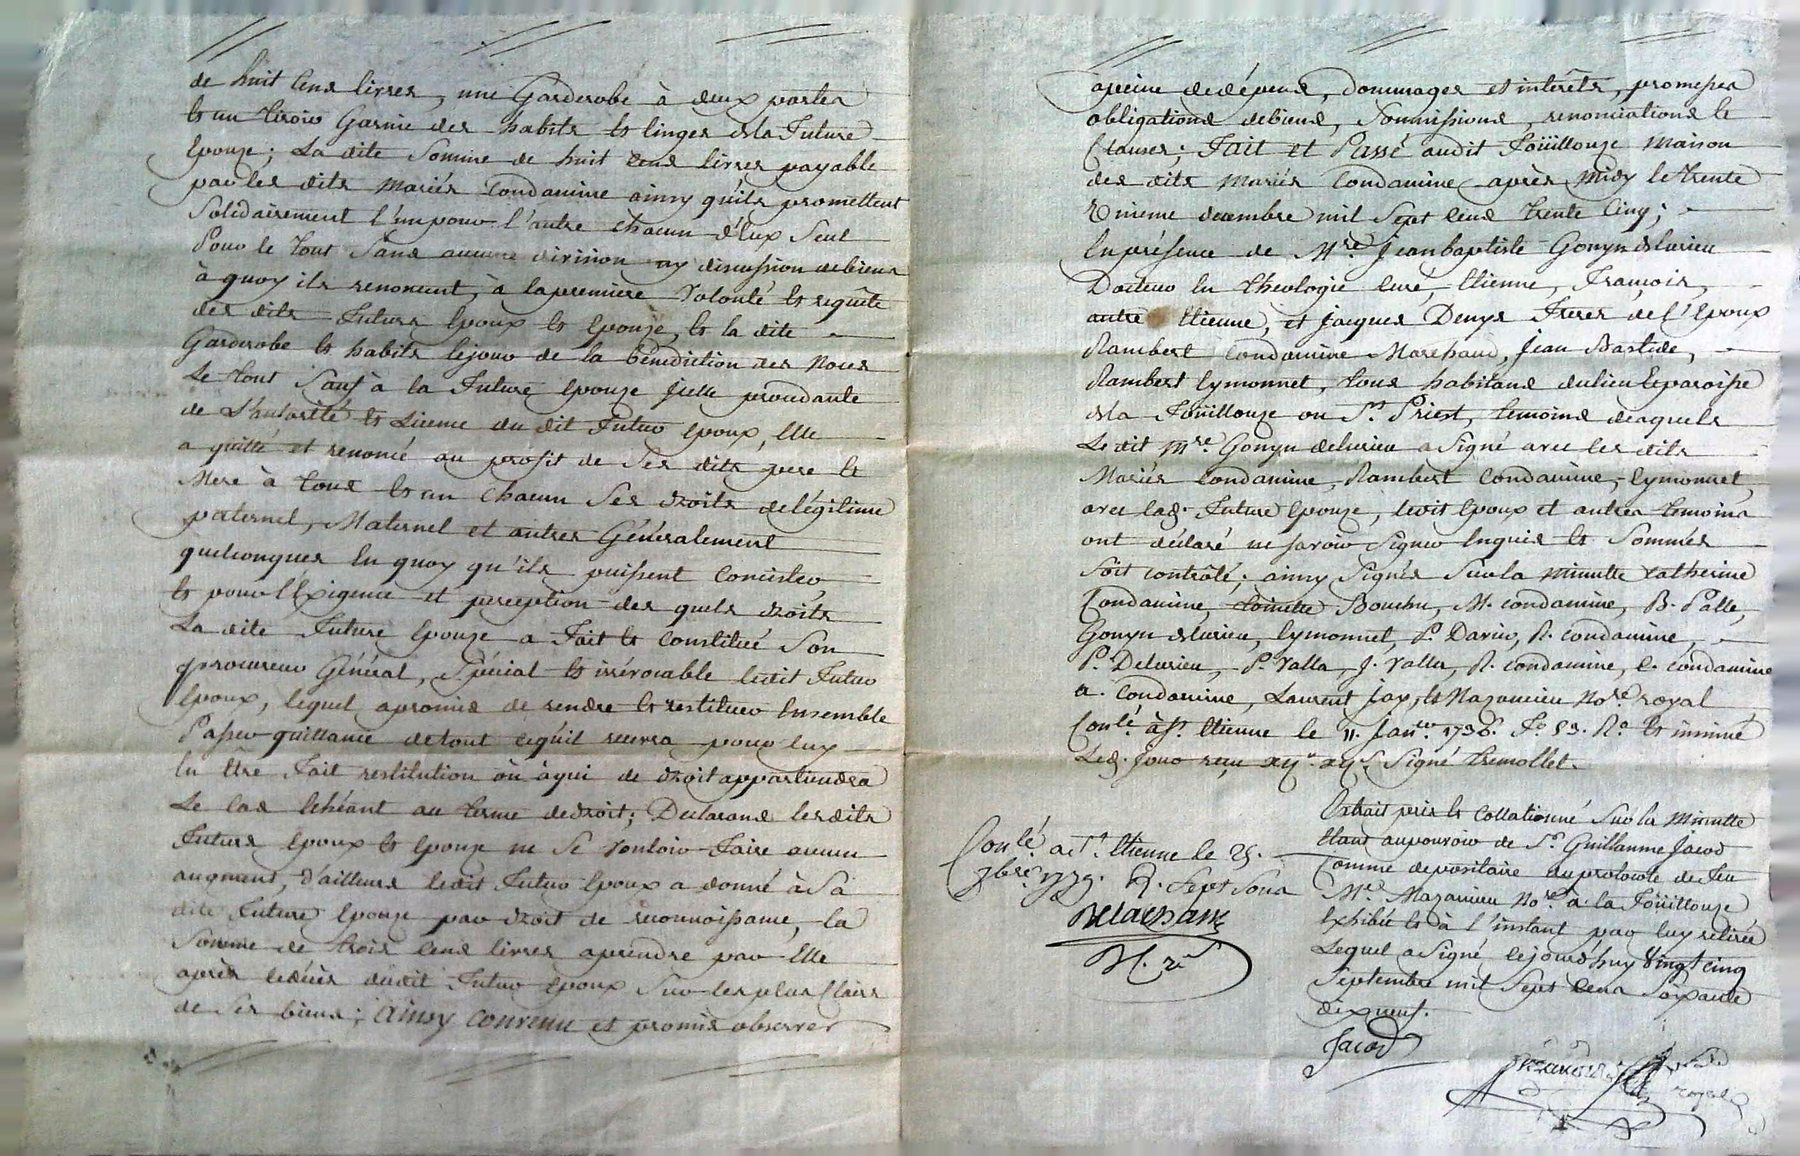 de huit cens livres, une Garderobe à deux portes
et un tiroir Garnie des habits et linges de la Future
Epouze; La dite Somme de huit cens livres payable
par les dits mariés Condamine ainsy qu'ils promettent
Solidairement l'un pour l'autre chacun d'Eux Seul
Pour le tout Sans aucune division ny discussion de biens
à quoy ils renoncent, à la premiere volonté et requête
des dits Futurs Epoux et Epouze, et la dite
Garderobe et habits le jour de la bénédiction des Noces
Le tout Sauf à la Future Epouze jcelle procedante
de L'autorité et Licence du dit Futur Epoux, Elle
a quitté et renoncé au profit de Ses dits pere et
Mere à tous et un chacun Ses droits de légitime
paternel, Maternel et autres Généralement
quelconques En quoy qu'ils puissent Concister
et pour l'Exigence et perception des quels droits
La dite Future Epouze a Fait et Constitué Son
procureur Général, Spécial et irrévocable ledit Futur
Epoux, lequel a promis de rendre et restituer Ensemble
Passer quittance de tout ce qu'il recevra pour luy
En Etre Fait restitution où à qui de droit appartiendra
Le Cas Echéant au terme de droit; Declarans les dits
Futurs Epoux et Epouze ne Se vouloir Faire aucun
augment, d'ailleurs ledit Futur Epoux a donné à Sa
dite Future Epouze par droit de reconnoissance, la
Somme de trois Cens livres a prendre par Elle
après le décès du dit Futur Epoux Sur les plus Clairs
de Ses biens; Ainsy Convenu et promis observer
a peine de dépens, dommages et intérêts, promesses
obligations de biens, Soumissions, renonciations et
Clauses; Fait et Passé audit Foüillouze Maison
des dits mariés Condamine après Midy le trente
Unieme decembre mil Sept cens trente Cinq;
En présence de Mre. Jean baptiste Gonyn delurieu
Docteur En theologie Curé, Etienne, François,
autre Etienne, et Jacques Denys Freres de l'Epoux
Rambert Condamine Marchand, Jean Bastide,
Rambert Eymonnet, tous habitans du lieu et paroisse
de la Foüillouze ou St Priest, temoins desquels
Le dit Mre. Gonyn delurieu a Signé avec les dits
Mariés Condamine, Rambert Condamine, Eymonnet,
avec lad. Future Epouze, ledit Epoux et autres temoins
ont déclaré ne Savoir Signer Enquis et Sommés
Soit contrôlé; ainsy Signés Sur la minutte Catherine
Condamine, toinette Bouchu, M. Condamine, B. Palle,
Gonyn delurieu, Eymonnet, P. Darier, R. Condamine,
P. Delurieu, P. Valla, J. Valla, R. Condamine, C. Condamine
a. Condamine, Laurent Jay, et Mazancieu Nore. royal
Conlé. à St. Etienne le 11. Janer. 1736. Fo. 53. Ro. et insinué
Led. Jour reçu Signé tremollet.
Extrait pris et Collationné Sur la Minutte
Etant au pouvoir de Sr. Guillaume Jacod
Comme depositaire du protocole de Feu
Me. Mazancieu Nore. à la Foüillouze
Exhibée et à l'instant par luy retirée
Lequel a Signé ce jourd'huy Vingt cinq
Septembre mil Sept Cens Soixante
dix neuf.
Jacod
Conlé. a St. Etienne le 25.
7bre. 1779. R. Sept Sous